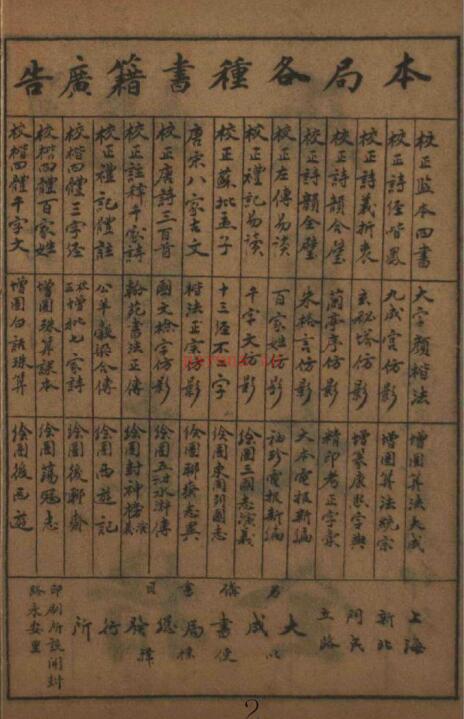 本局各種書籍廣告
校正監本四書
校正詩義折衷
校正詩韻合璧
校正詩韻全璧
校正左傳易读
校正禮記易读
校正蘇批孟子
唐宋八家古文
校正唐诗三百首
校正註释千家詩
校正禮記體註
校楷四體三字经
校楷四體百家姓
校楷四體千字文
大字顏楷法
九成宫仿影
玄秘塔仿影
蘭亭序仿影
朱格言仿影
百家姓仿影
千字文仿影
十三经不二字
楷法正宗仿影
國文檢字仿影
翰苑書法正傳
公羊穀梁合傳
校正增批七家詩
增圖珠算課本
增圖白話珠算
增圖算法大成
增圖算法統宗
增篆康熙字典
精印考正字彙
大本電报新編
袖珍電报新編
绘圖三國志演義
绘圖東周列國志
绘圖聊斎志異
绘圖五才水滸傳
绘圖封神榜演義
绘圖西遊記
绘圖後聊齋
绘圖蕩冦志
绘圖後西遊
上海
新北門民立路
大成書局總發行所
另備書目
以便採擇
印刷所設開封
路永安里
2